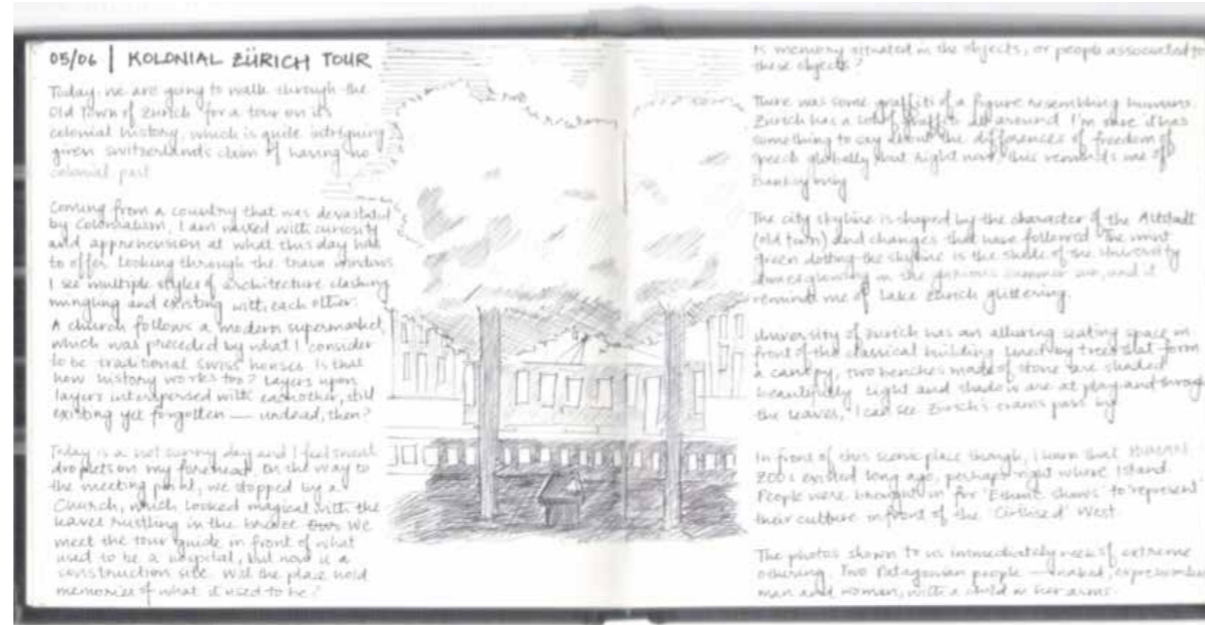 05/06 | KOLONIAL ZÜRICH TOUR
Today, we are going to walk through the
Old Town of Zurich for a tour on its
colonial history, which is quite intriguing
given Switzerland's claim of having no
colonial past
Coming from a country that was devastated
by Colonialism, I am mixed with curiosity
and apprehension at what this day has
to offer. Looking through the tram windows
I see multiple styles of architecture clashing
mingling and existing with each other.
A church follows a modern supermarket,
which was preceded by what I consider
to be traditional Swiss houses. Is that
how history works too? Layers upon
layers interspersed with eachother, still
existing yet forgotten — undead, then?
Today is a hot sunny day and I feel sweat
droplets on my forehead. On the way to
the meeting point, we stopped by a
Church, which looked magical with the
leaves rustling in the breeze. We
meet the tour guide in front of what
used to be a hospital, but now is a
construction site. Will the place hold
memories of what it used to be?
Is memory situated in the objects, or people associated to
these objects?
There was some graffiti of a figure resembling humans.
Zurich has a lot of graffiti all around. I'm sure it has
something to say about the differences of freedom of
speech globally but right now, this reminds me of
Banksy only
The city skyline is shaped by the character of the Altstadt
(old town) and changes that have followed. The mint
green dotting the skyline is the shade of the University
glowing in the glorious summer air, and it
reminds me of Lake Zurich glittering.
University of Zurich has an alluring seating space in
front of the classical building lined by trees that form
a canopy, two benches made of stone are shaded
beautifully. Light and shadow are at play and through
the leaves, I can see Zurich's trams pass by.
In front of this scenic place though, I learn that HUMAN
ZOOs existed long ago, perhaps right where I stand.
People were brought in for 'Ethnic shows' to 'represent'
their culture in front of the 'Civilised' West.
The photos shown to us immediately reek of extreme
othering. Two Patagonian people — naked,
man and woman, with a child in her arms.